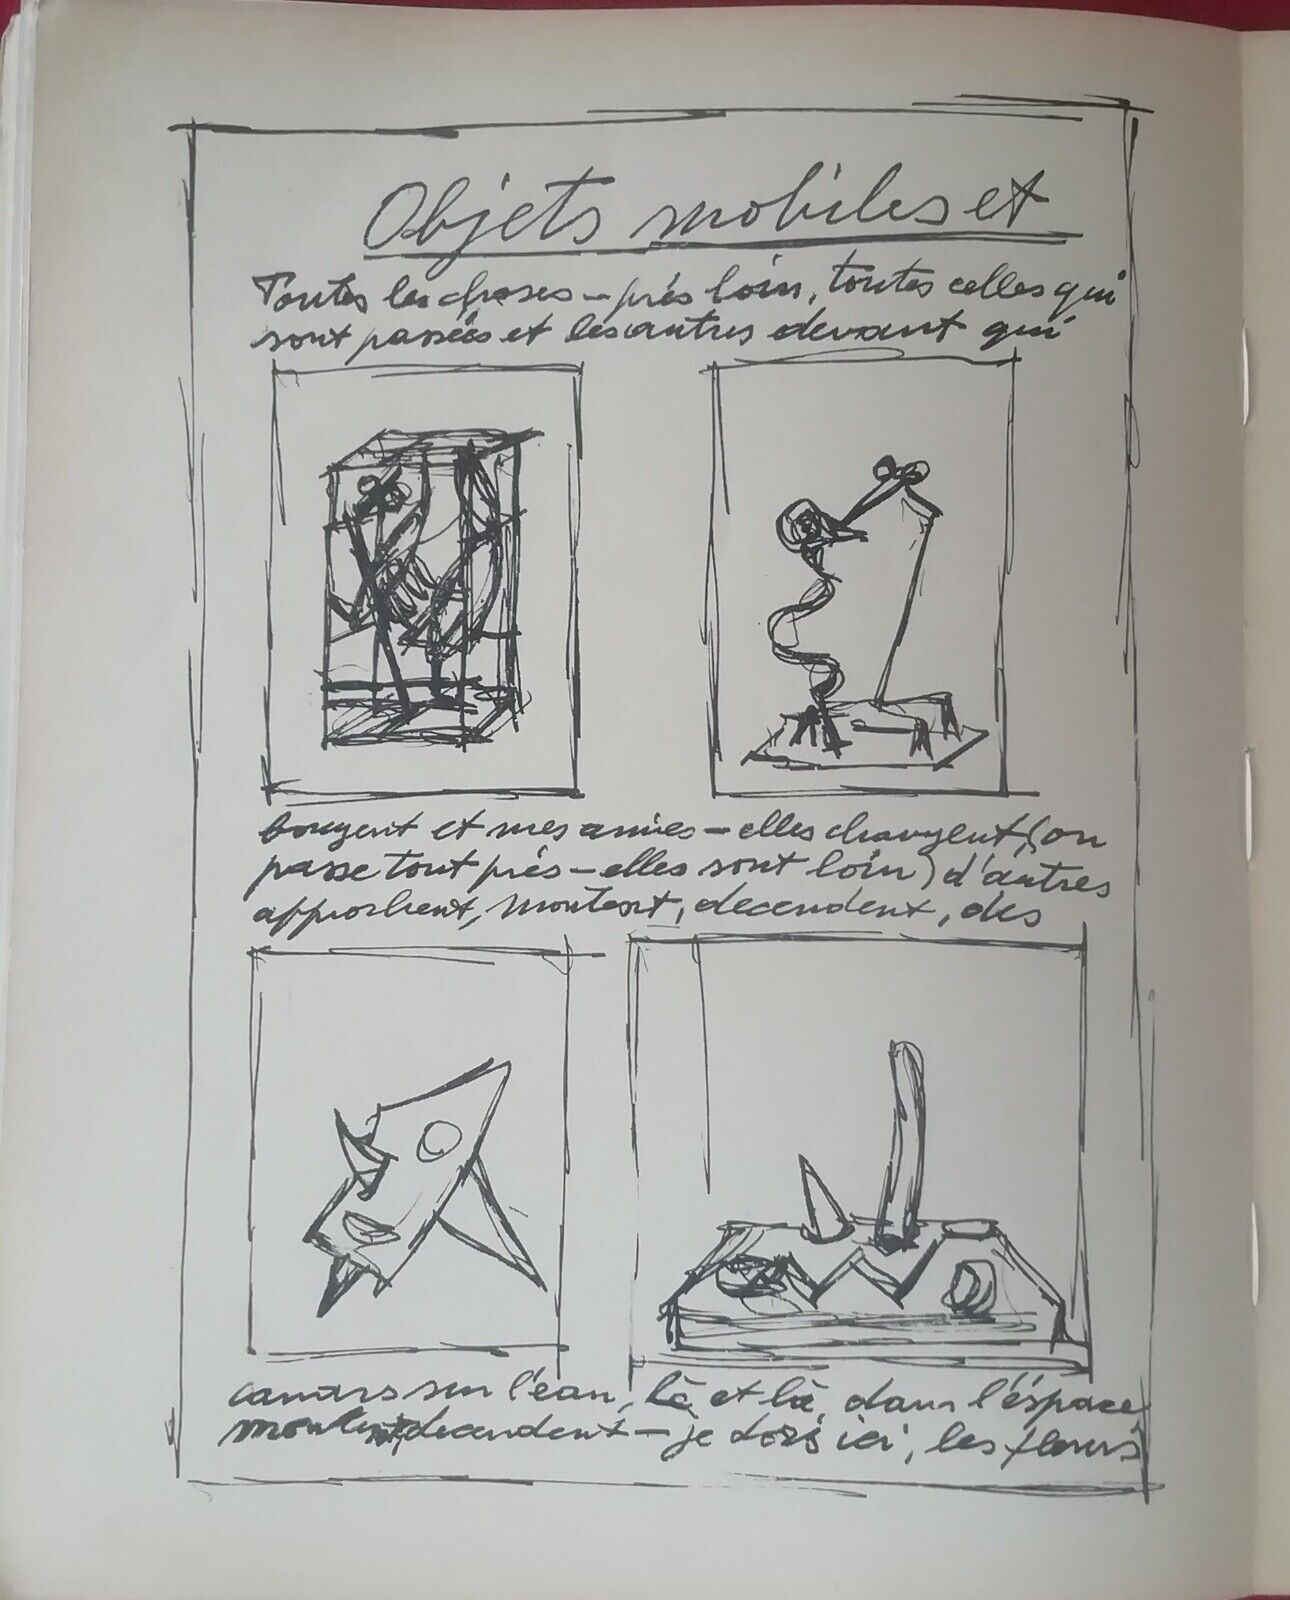 Objets mobiles et
Toutes les choses – près loin, toutes celles qui
sont passées et les autres devant qui
bougent et mes amies – elles changent, (on
passe tout près – elles sont loin) d'autres
approchent, montent, decendent, des
canars sur l'eau, là et là, dans l'éspace
montent, decendent – je dors ici, les fleurs